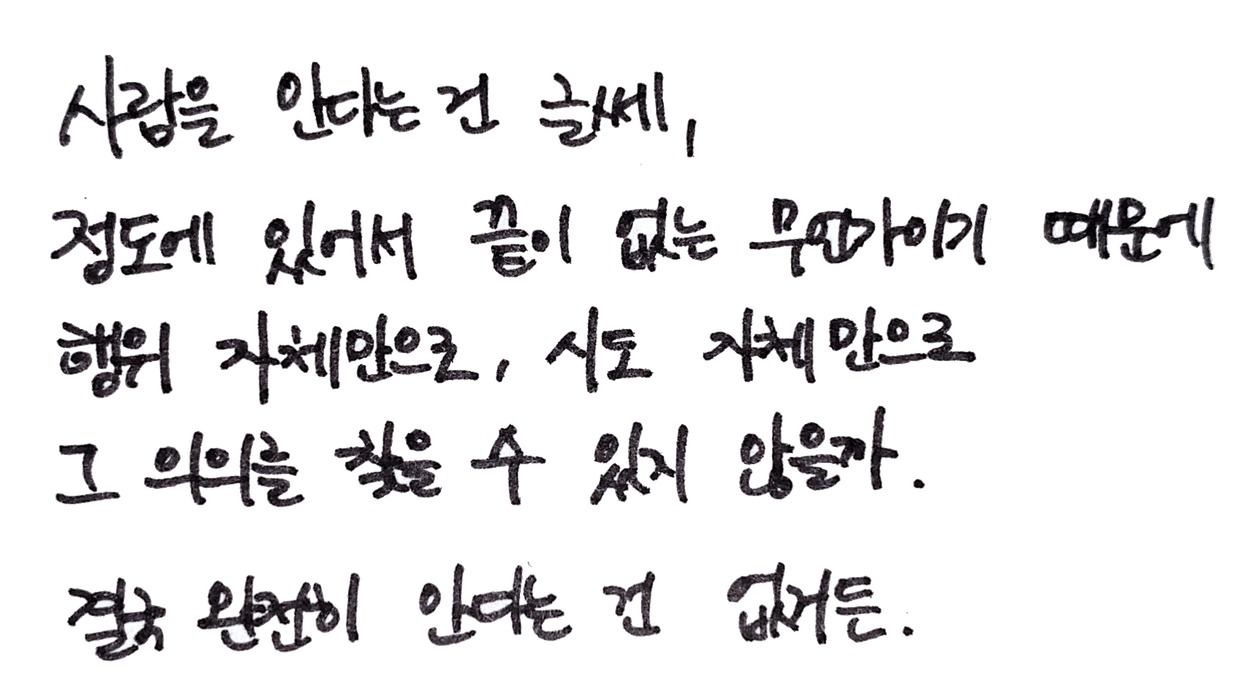 사람을 안다는 건 글쎄,
정도에 있어서 끝이 없는 무언가이기 때문에
행위 자체만으로, 시도 자체만으로
그 의의를 찾을 수 있지 않을까.
결국 완전히 안다는 건 없거든.